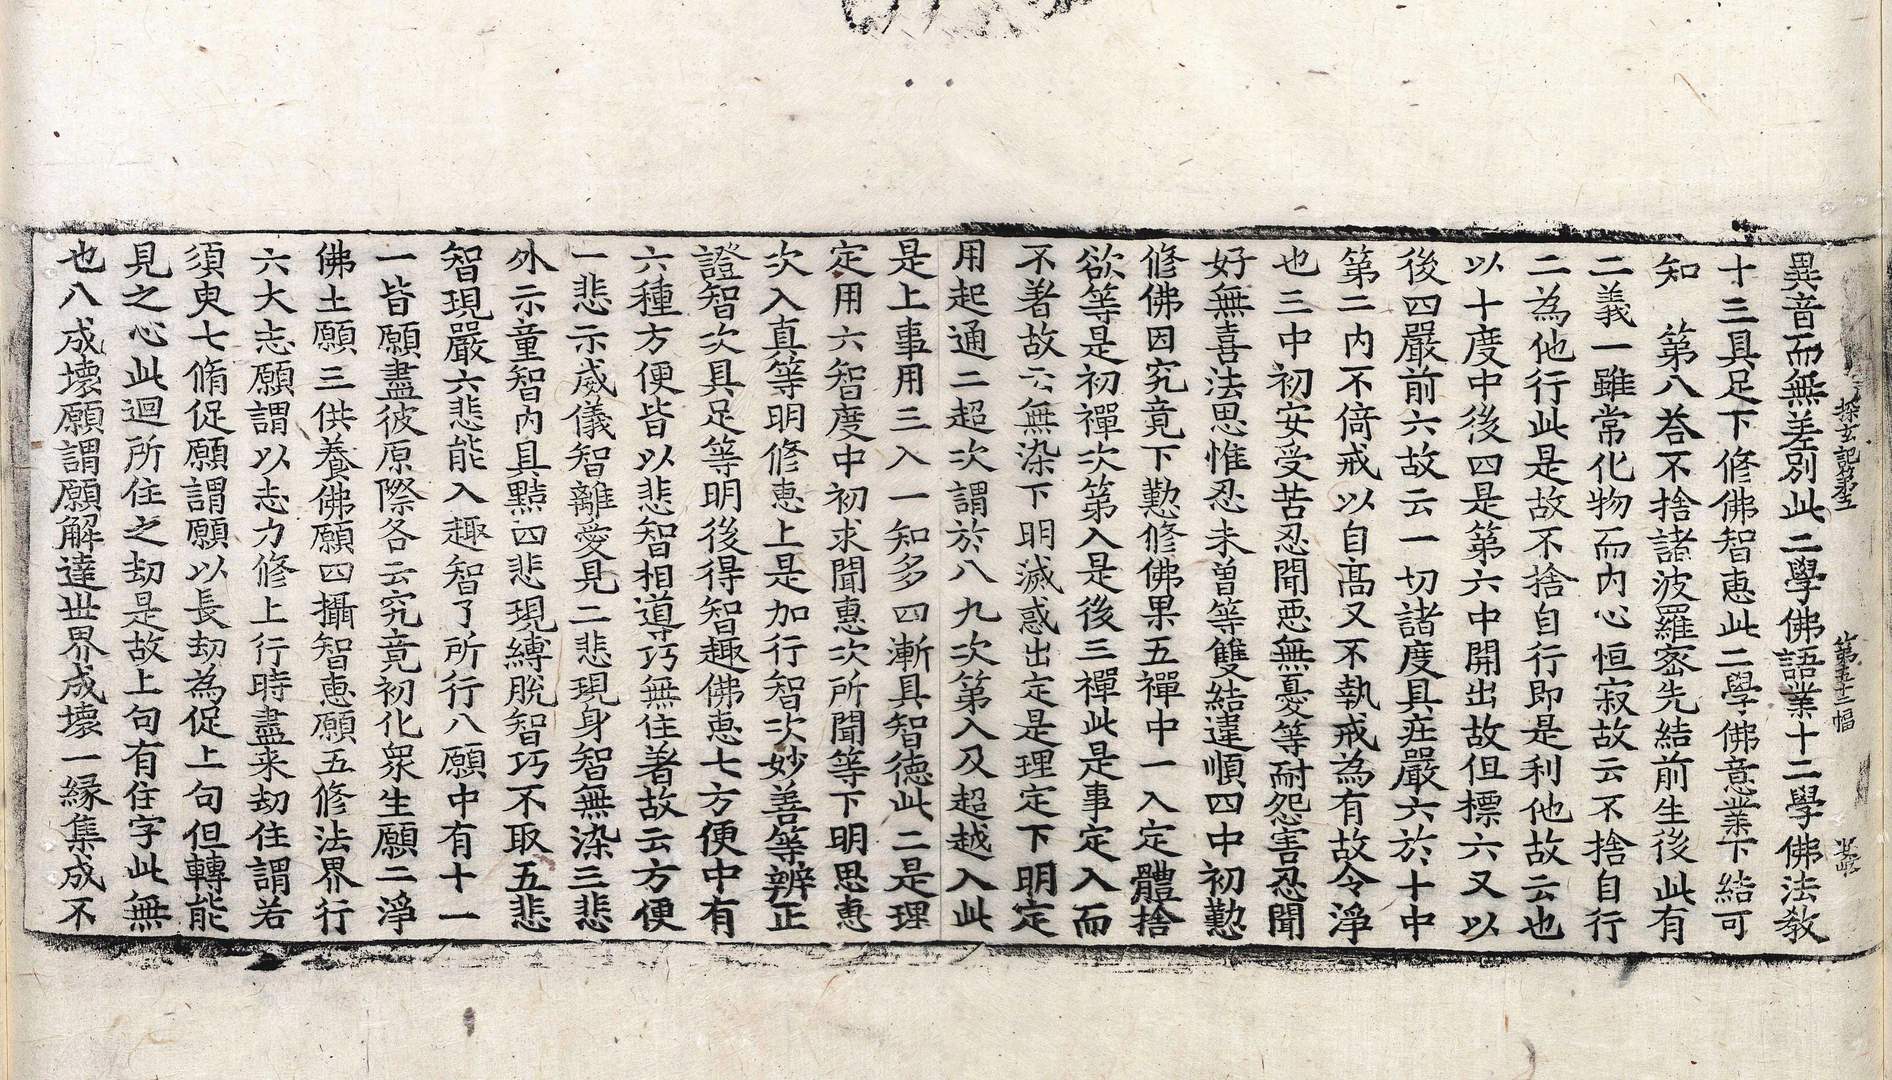 探玄記第五　第五十二幅
異音而無差別此二學佛語業十二學佛法教
十三具足下修佛智恵此二學佛意業下結可
知　第八荅不捨諸波羅宻先結前生後此有
二義一雖常化物而内心恒寂故云不捨自行
二為他行此是故不捨自行即是利他故云也
以十度中後四是第六中開出故但摽六又以
後四嚴前六故云一切諸度具㽵嚴六於十中
第二内不倚戒以自髙又不執戒為有故令淨
也三中初安受苦忍聞悪無憂等耐怨害忍聞
好無喜法思惟忍未曽等雙結違順四中初懃
修佛因究竟下懃修佛果五禪中一入定體捨
欲等是初禪次第入是後三禪此是事定入而
不著故云無染下明滅惑出定是理定下明定
用起通二超次謂於八九次第入及超越入此
是上事用三入一知多四漸具智徳此二是理
定用六智度中初求聞恵次所聞等下明思恵
次入直等明修恵上是加行智次妙善等辨正
證智次具足等明後得智趣佛恵七方便中有
六種方便皆以悲智相導巧無住著故云方便
一悲示威儀智離愛見二悲現身智無染三悲
外示童智内具㸃四悲現縛脫智巧不取五悲
智現嚴六悲能入趣智了所行八願中有十一
一皆願盡彼原際各云究竟初化衆生願二淨
佛土願三供養佛願四攝智恵願五修法界行
六大志願謂以志力修上行時盡来劫住謂若
須臾七脩促願謂願以長劫為促上句但轉能
見之心此迴所住之劫是故上句有住字此無
也八成壊願謂願解達世界成壊一縁集成不